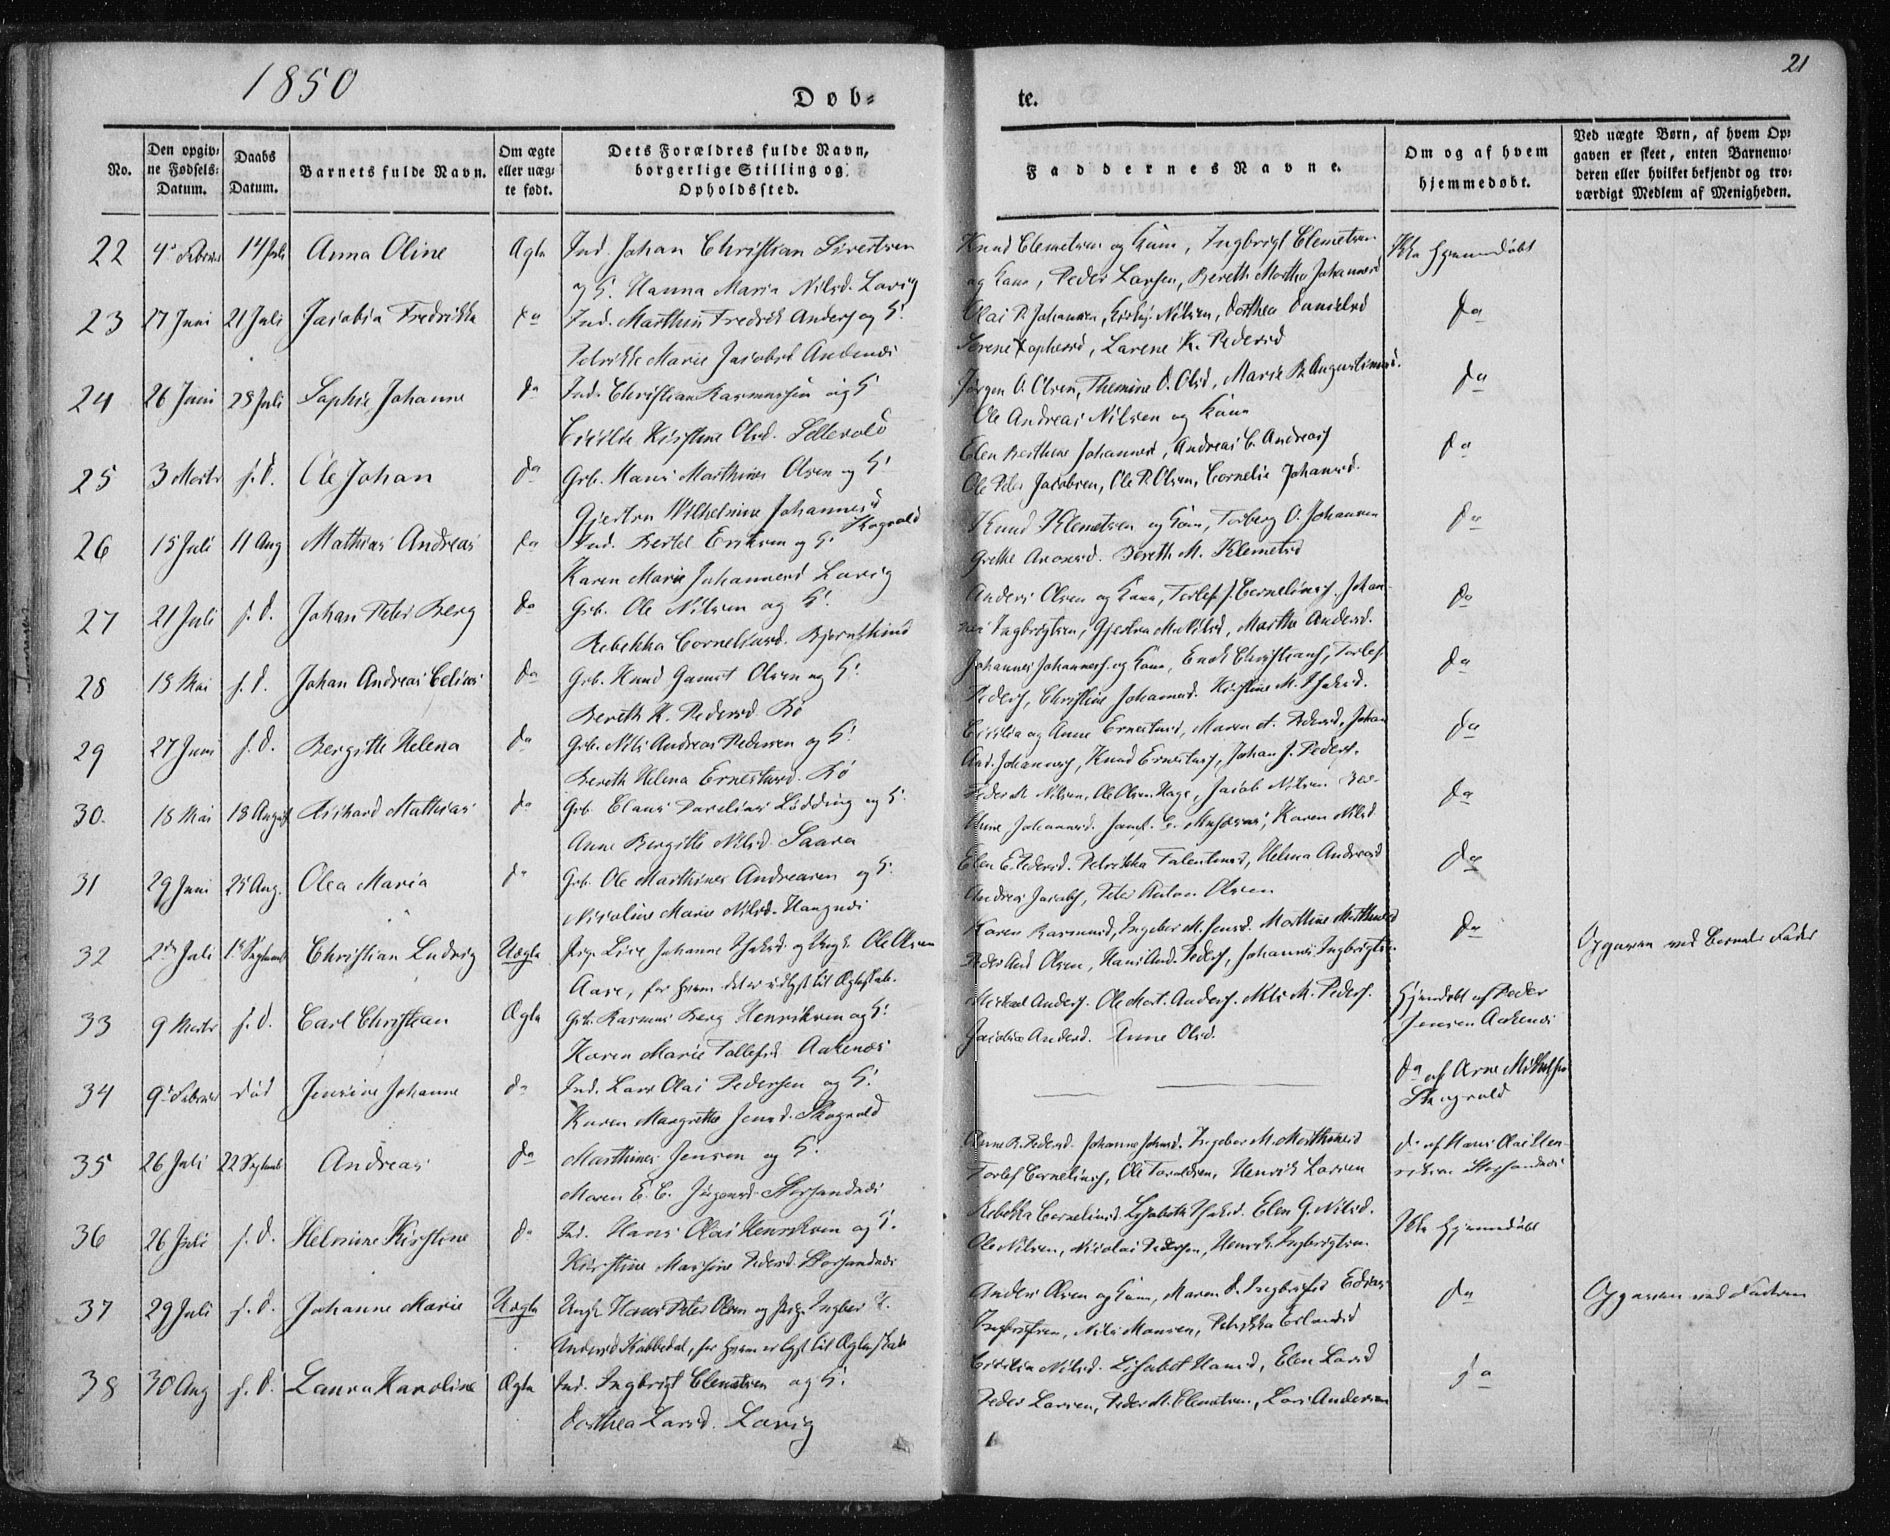 1850
21
Døb=
te.
No.
Den opgiv=
ne Fødsels=
Datum.
Daabs
Datum.
Barnets fulde Navn.
Om ægte
eller uæg=
te født.
Dets Forældres fulde Navn,
borgerlige Stilling og
Opholdssted.
Faddernes Navne.
Om og af hvem
hjemmedøbt.
Ved uægte Børn, af hvem Op=
gaven er skeet, enten Barnemo=
deren eller hvilket bekjendt og tro=
værdigt Medlem af Menigheden.
22 4de Februar 14 Juli Anna Oline Ægte Ind. Johan Christian Sivertsen
og H. Hanna Maria Nilsd. Lovig
Knud Clemetsen og Kone, Ingbrigt Clemetsen
og Kone, Peder Larsen, Bereth Martha Johannesd
Ikke hjemmedøbt
23 27 Juni 21 Juli Jacobia Fredrikke do Ind. Marthin Fredrik Anders og H.
Petrikke Marie Jacobsd Andenæs
Olai P. Johansen, Nilsen, Dorthea Danielsd
Serene, Larene K. Pedersd
do
24 26 Juni 28 Juli Sophie Johanne do Ind. Christian Rasmussen og H
Cecilie Kirstine Olsd. Sellevold
Jørgen O. Olsen, Themine O. Olsd, Marie B. Augustinusd.
Ole Andreas Nilsen og Kone
do
25 3 Marts s.d. Ole Johan do Grb. Hans Marthinus Olsen og H.
Gjertru Wilhelmine Johannesd
Skogvold
Elen Berthine Johannesd, Andreas C. Andreas
Ole Peder Jacobsen, Ole P. Olsen, Cornelia Johansd.
do
26 15 Juli 11 Aug Mathias Andreas do Ind. Bertel Eriksen og H.
Karen Marie Johannesd Lovig
Knud Klemetsen og Kone, Torberg O. Johansen
Grethe Aronsd. Bereth M. Klemetsd
do
27 21 Juli s.d. Johan Peter Berg do Grb. Ole Nilsen og H.
Rebekka Corneliusd. Bjørnskind
Anders Olsen og Kone, Torlef J. Corneliuss, Johan-
nes Ingbrigtsen, Gjertru M. Nilsd, Martha Andersd.
do
28 13 Mai s.d. Johan Andreas Celius do Grb. Knud Gamst Olsen og H.
Bereth K. Pedersd. Bø
Johannes Johanness. og Kone, Enok Christians, Torlef
Peders, Christine Johannesd. Kirstine M. Isaksd.
do
29 27 Juni s.d. Bergitte Helena do Grb. Nils Andreas Pedersen og H.
Bereth Helena Ernestusd. Bø
Cecilia og Anne Ernestusd, Maren A. Pedersd, Johan
And. Johanness, Knud Ernestuss, Johan J. Peders.
do
30. 18 Mai 18 August Rickard Mathias do Grb. Claus Parelius Lødding og H.
Anne Bergitte Nilsd. Saura
Peder M. Nilsen, Ole Olsen Hage, Jacob Nilsen
Johannesd. Karen Nilsd
do
31 29 Juni 25 Aug. Olea Maria do Grb. Ole Marthines Andreasen og H.
Nicoline Marie Nilsd. Haugnæs
Elen E. Pedersd. Petrikka Talentinsd, Helena Andreasd
Andreas Jacobs, Peter Anton Olsen
do
32 2den Juli 1ste September Christian Ludvig Uægte Pige Lise Johanne Isaksd og Ungk. Ole Olsen
Aase, for hvem det er udlyst til Ægteskab.
Karen Rasmusd, Ingeber M. Jensd. Marthine Marthinusd
Peder And. Olsen, Hans And. Peders, Johannes Ingbrigtsen
do
Opgaven ved Barnets Fader
33 9 Marts s.d. Carl Christian Ægte Grb. Rasmus Berg Henriksen og H.
Karen Marie Tollefsd Aakenæs
Mikkel Anders. Ole Mort. Anders. Nils M. Peders.
Jacobia Andersd. Anne Olsd.
Hjemdøbt af Peder
Jensen Aakenæs
34 9de Februar død Jensine Johanne do Ind. Lars Olai Pedersen og H.
Karen Margrethe Jensd. Skogvold
do af Arne Mikkelsen
Skogvold
35 26 Juli 22 Septemb Andreas do Marthines Jensen og H.
Maren E. C. Størsandnæs
Anne B. Pedersd. Johanna Johansd. Ingeber M. Marthinusd
Torlef Corneliuss, Ole Toraldsen, Henrik Larsen
do af Hans Olai Hen-
riksen Storsandnæs
36 26 Juli s.d. Helmine Kirstine do Ind. Hans Olai Henriksen og H.
Kirstine Marsine Pedersd. Storsandnæs
Rebekka Corneliusd. Lisabeth Isaksd. Elen G. Nilsd.
Ole Nilsen, Nicolai Pedersen, Henrik Ingbrigtsen.
Ikke hjemmedøbt
37 29 Juli s.d. Johanne Marie Uægte Ungk. Hans Peter Olsen og Pige Ingeber H.
Andersd Kobbedal, for hvem er lyst til Ægteskab
Anders Olsen og Kone, Maren D. Ingbrigtsd Edvas
Ingbrigtsen, Nils Monsen, Petrikka Erlandsd
do
Opgaven ved Faderen
38 30 Aug s.d. Laura Karoline Ægte Ind. Ingbrigt Clemetsen og H.
Dorthea Larsd. Lovig
Cecilia Nilsd. Lisabet Hansd, Elen Larsd
Peder Larsen, Peder M. Clemetsen, Lars Andersen
do